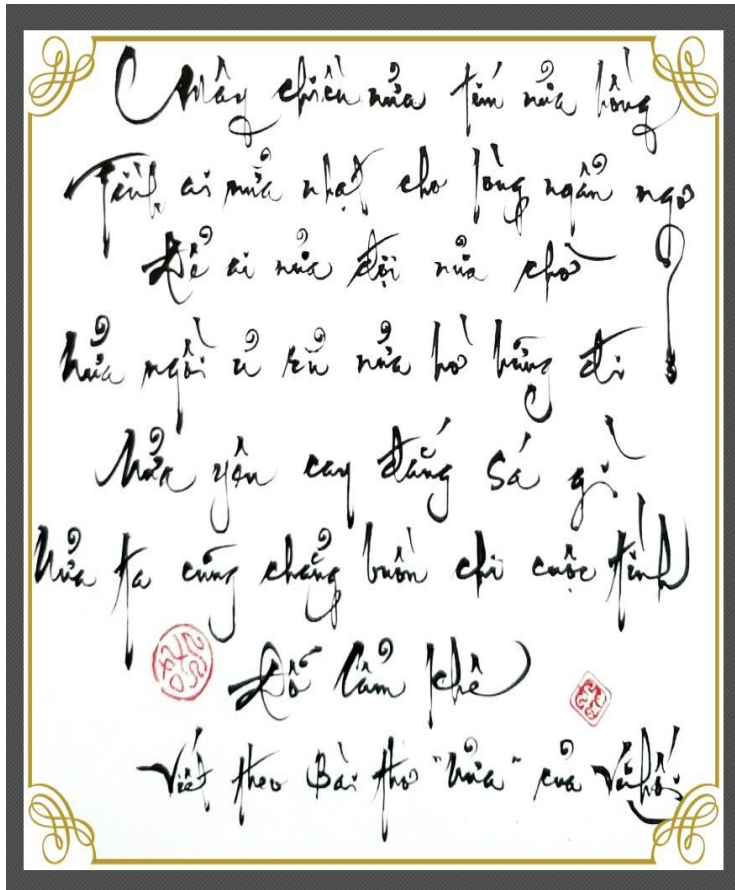 Mây chiều nửa tím nửa hồng
Tình ai nửa nhạt cho lòng ngẩn ngơ
Để ai nửa đợi nửa chờ
Nửa ngồi ủ rũ nửa hờ hững đi
Nửa yên cay đắng sá gì
Nửa ta cũng chẳng buồn chi cuộc tình
Đỗ Lâm Khê
Viết theo Bài thơ "Nửa" của